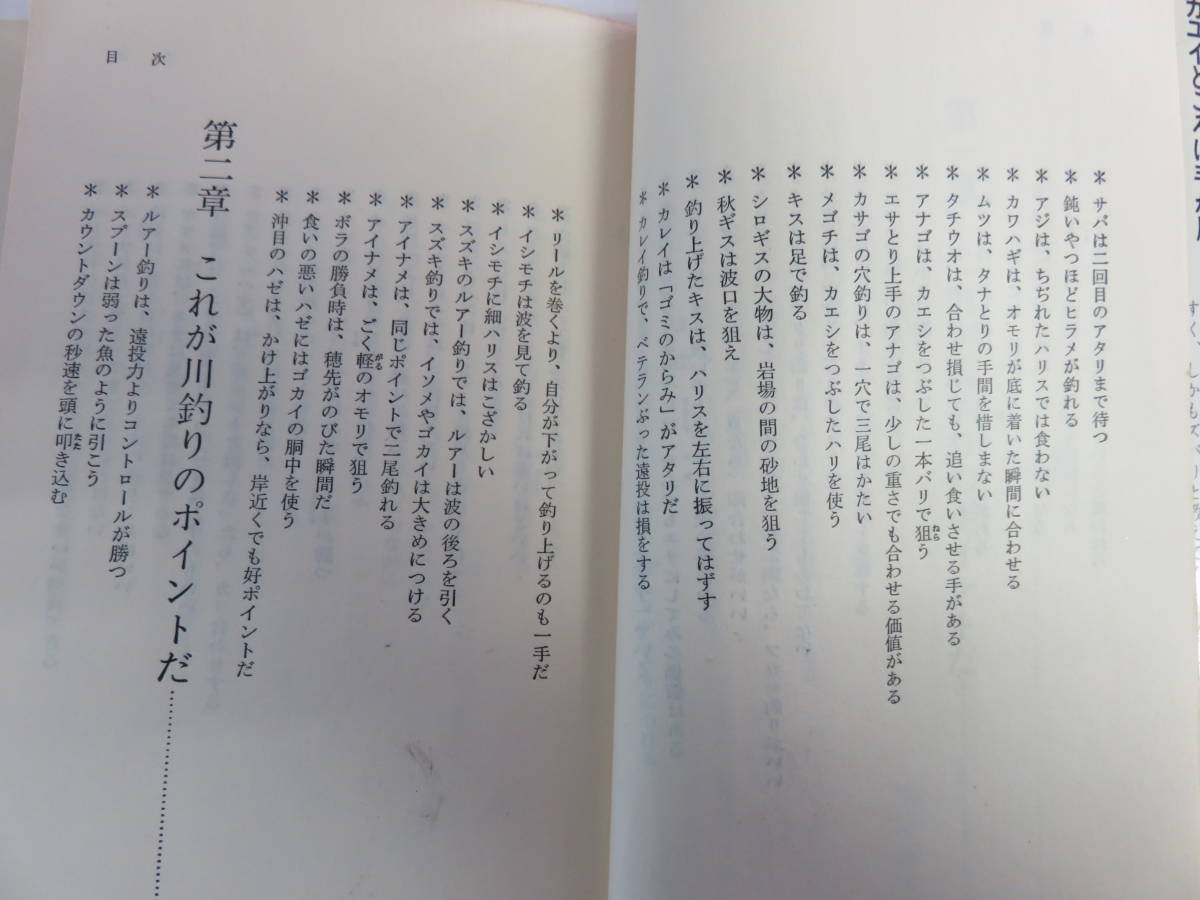 ＊サバは二回目のアタリまで待つ
＊鈍いやつほどヒラメが釣れる
＊アジは、ちぢれたハリスでは食わない
＊カワハギは、オモリが底に着いた瞬間に合わせる
＊ムツは、タナとりの手間を惜しまない
＊タチウオは、合わせ損じても、追い食いさせる手がある
＊アナゴは、カエシをつぶした一本バリで狙う
＊エサとり上手のアナゴは、少しの重さでも合わせる価値がある
＊カサゴの穴釣りは、一穴で三尾はかたい
＊メゴチは、カエシをつぶしたハリを使う
＊キスは足で釣る
＊シロギスの大物は、岩場の間の砂地を狙う
＊秋ギスは波口を狙え
＊釣り上げたキスは、ハリスを左右に振ってはずす
＊カレイは「ゴミのからみ」がアタリだ
＊カレイ釣りで、ベテランぶった遠投は損をする
目次
＊リールを巻くより、自分が下がって釣り上げるのも一手だ
＊イシモチは波を見て釣る
＊イシモチに細ハリスはこざかしい
＊スズキのルアー釣りでは、ルアーは波の後ろを引く
＊スズキ釣りでは、イソメやゴカイは大きめにつける
＊アイナメは、同じポイントで二尾釣れる
＊アイナメは、ごく軽のオモリで狙う
＊ボラの勝負時は、穂先がのびた瞬間だ
＊食いの悪いハゼにはゴカイの胴中を使う
＊沖目のハゼは、かけ上がりなら、岸近くでも好ポイントだ
第二章 これが川釣りのポイントだ
＊ルアー釣りは、遠投力よりコントロールが勝つ
＊スプーンは弱った魚のように引こう
＊カウントダウンの秒速を頭に叩き込む